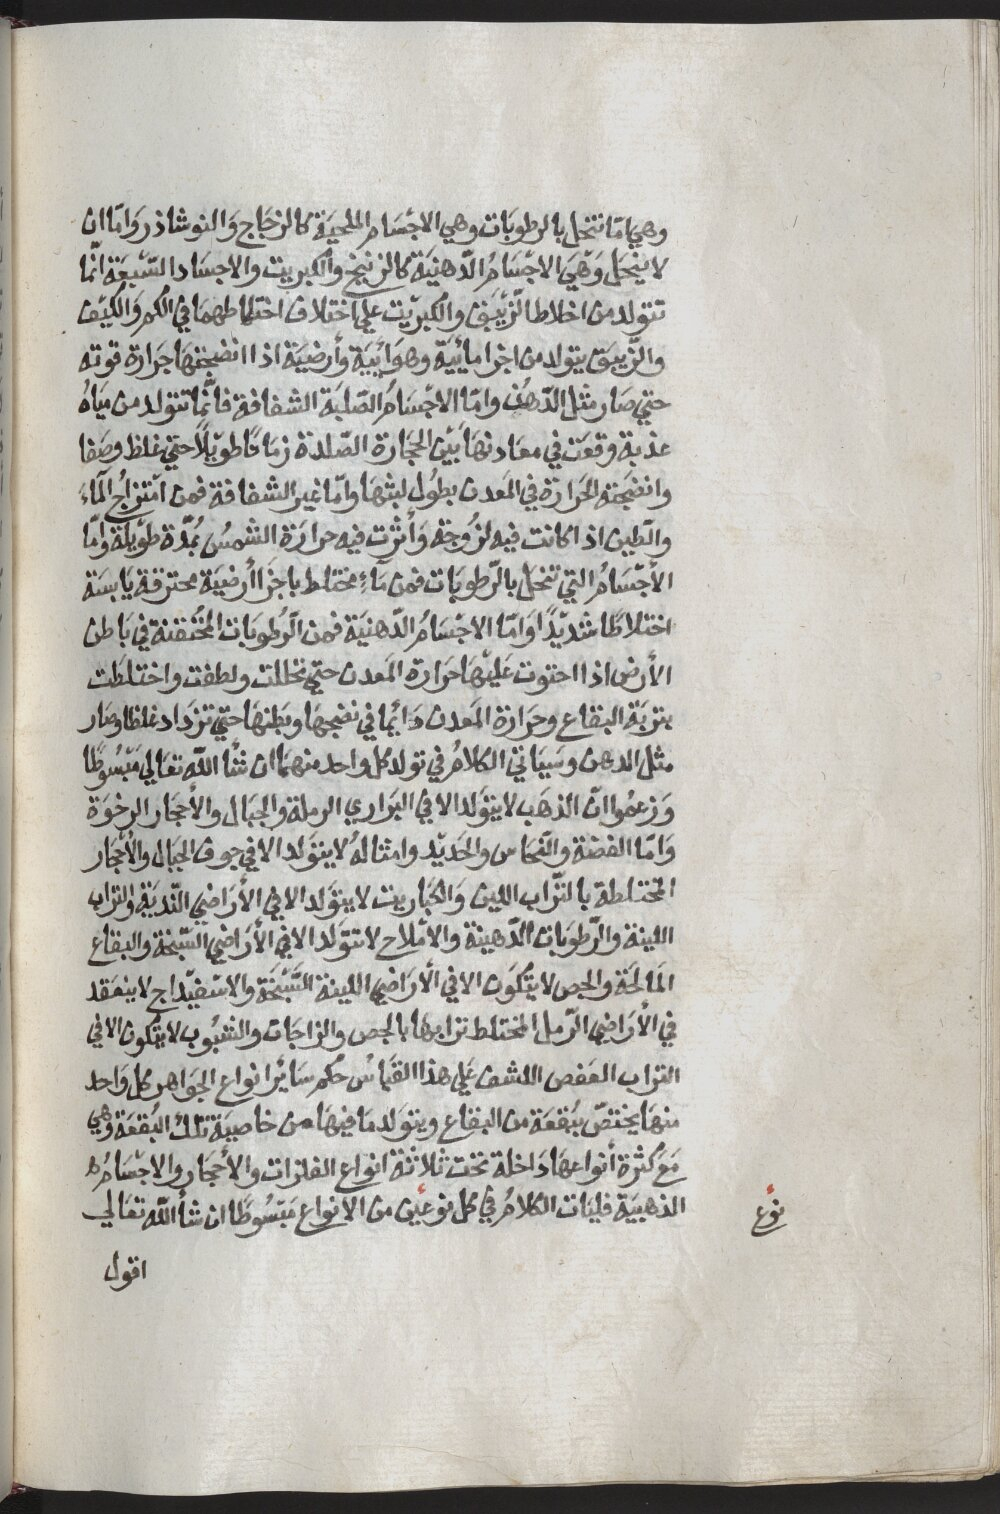 وهي امّا تنحل بالرطوبَات وهي الاجْسَام الملحيَة كالزجَاج وَالنوشاذر وَامّا ان
لا ينحَل وَهيَ الاجْسَامُ الدّهنيَة كالزنيخ والكبريت والاجسَاد السّبْعَة انّما
تتولد من اخلاط الزّيبَق والكبريْت علي اختلاف اختلاطهمَا في الكم وَالكيْف
والزّيبَق يتولد من اجزا مائيَة وهوَائيَة وأرضيَة اذا انضجتهَا حَرارة قوته
حتي صَار مثل الدّهن وامّا الاجْسَامُ الصّلبَة الشفافة فانّما تتولد من ميَاه
عذبة وقعَت في معَادنهَا بَيْن الحجَارة الصّلدة زمَانًا طويْلاً حتي غلظ وصَفا
وانضجَته الحَرارة في المَعدن بطوُل لبثهَا وامّا غير الشفافة فمن امْتزاجُ المَآءِ
والطّين اذا كانت فيه لزُوجة وَأثرْت فيه حرارَة الشمسُ مُدّة طوْيلة وَامّا
الأجْسَامُ التي تنحَل بالرّطوبَات فمن مَآءٍ مختلط باجزَا أرضيَة محترقة يَابسَة
اختلاطًا شديْدًا وَامّا الاجْسَامُ الدّهنيَة فمن الرّطوبَات المُحْتقنة في بَاطن
الأرض اذا احتوت عَليْهَا حَرارة المَعدن حتي تحللت ولطفت واختلطَت
بتربَة البقاع وحرَارة المَعدن دَائمًا في نضجهَا وبَطنهَا حتّي تزدَاد غلظا وصَار
مثل الدهن وسَيَاتي الكلامُ في تولد كل واحد منهمَا ان شَأ اللّه تعَالي مَبْسُوطًا
وَزعمُوا انّ الذهَب لا يتوَلد الا في البَراري الرملة والجبَال والأحجَار الرخوَة
وَامّا الفضّة والنّحَاس والحَديْد وامثالهُ لا يتوَلد الا في جوف الجبَال والأحْجَار
المختلطة بالترَاب اللين وَالكبَاريت لا يتوَلد الا في الأرَاضي النّديَة والتراب
اللينة والرّطوبَات الدّهينة والامْلاح لا تتوَلد الا في الأرَاضي السّبخة والبقاع
المَالحَة والجص لا يتكوَن الا في الأرَاضي اللينة السّبْخَة والاسْفيْداج لا ينعَقد
في الأرَاضي الرّمل المختلط ترابهَا بالجص والزاجَات والشبُوب لا يتكون الا في
التراب العَفص اللشف عَلي هذا القيَاسُ حكم سَائر انواع الجَواهر كل وَاحد
منهَا يختصّ ببُقعَة من البقاع ويتوَلد مَا فيهَا من خاصيَة تلكَ البُقعَة وَهي
مَعَ كثرة أنواعهَا دَاخلة تحَت ثلاثة انواع الفلزات والأحجَار والاجْسَامُ
الذهبيَة فليَات الكلامُ في كل نوعَين من الانواع مَبْسُوطًا ان شأ اللّه تعَالي
نوُع
اقول